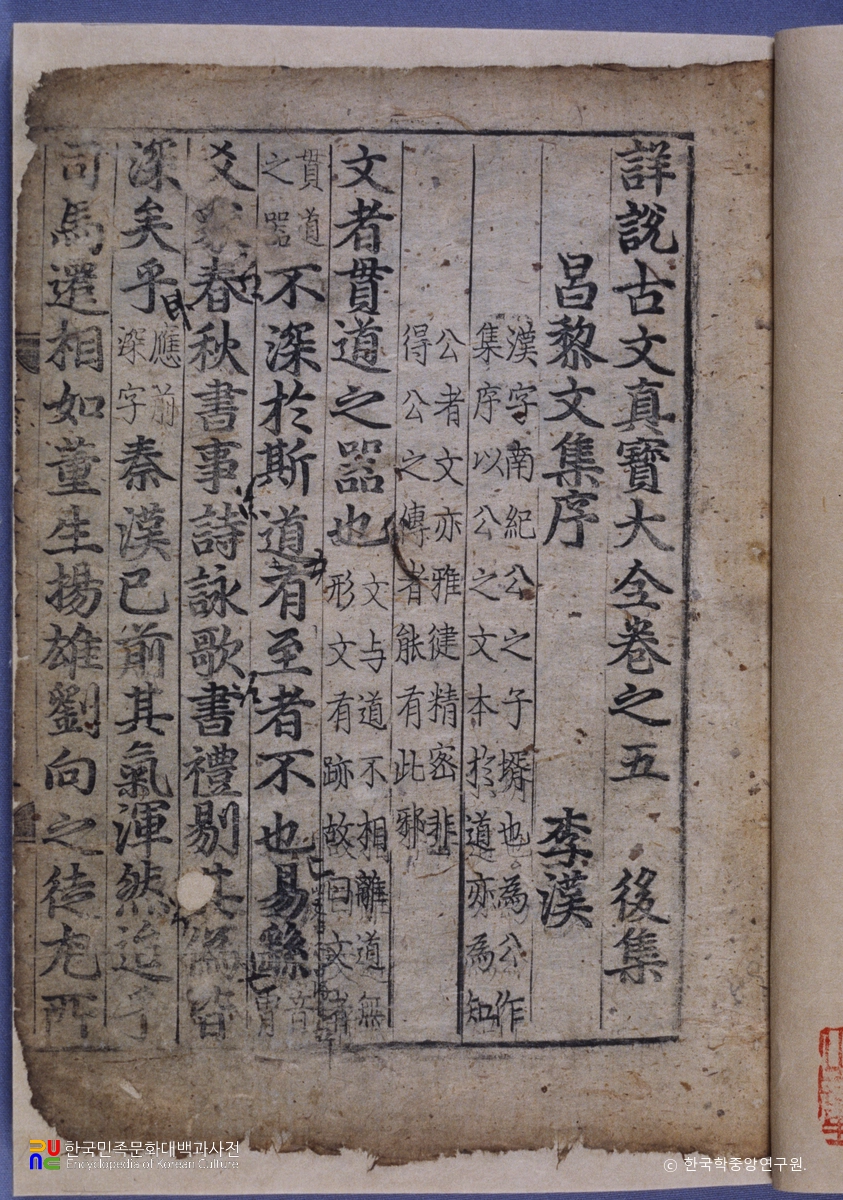 詳說古文真寶大全卷之五　後集
呂黎文集序　李漢
漢字南紀公之子壻也為公作
集序以公之文本於道亦為知
公者文亦雅健精密非
得公之傳者能有此邪
文者貫道之器也
文与道不相離道無
形文有跡故曰文者
貫道
之器
不深於斯道有至者不也易繇
音
冑
爻象春秋書事詩詠歌書禮剔其偽皆
深矣乎
應前
深字
秦漢已前其氣渾然迨乎
司馬遷相如董生揚雄劉向之徒尤所
한국민족문화대백과사전
Encyclopedia of Korean Culture
ⓒ 한국학중앙연구원.